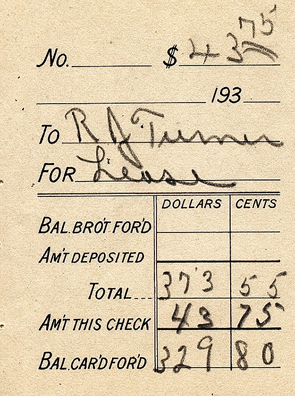 No. $ 43 75
193
To R J Turner
FOR Lease
DOLLARS CENTS
BAL. BRO'T FOR'D
AM'T DEPOSITED
TOTAL 373 55
AM'T THIS CHECK 43 75
BAL. CAR'D FOR'D 329 80